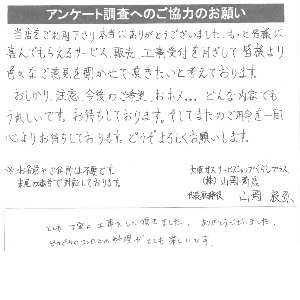 アンケート調査へのご協力のお願い
当店をご利用下さり、本当にありがとうございました。もっと皆様に
喜んでもらえるサービス、販売、工事受付を目ざして皆様より
色々なご意見を聞かせて頂きたいと考えております。
おしかり、注意、今後のご希望、おホメ… どんな内容でも
うれしいです。お待ちしております。そしてまたのご用命を一同
心よりお待ちしております。どうぞよろしくお願いします。
※お名前やご住所は不要です。
大阪ガスサービスショップ くらしプラス
(株)山岡商店
代表取締役 山岡
とても丁寧に工事をして頂きました。ありがとうございました。